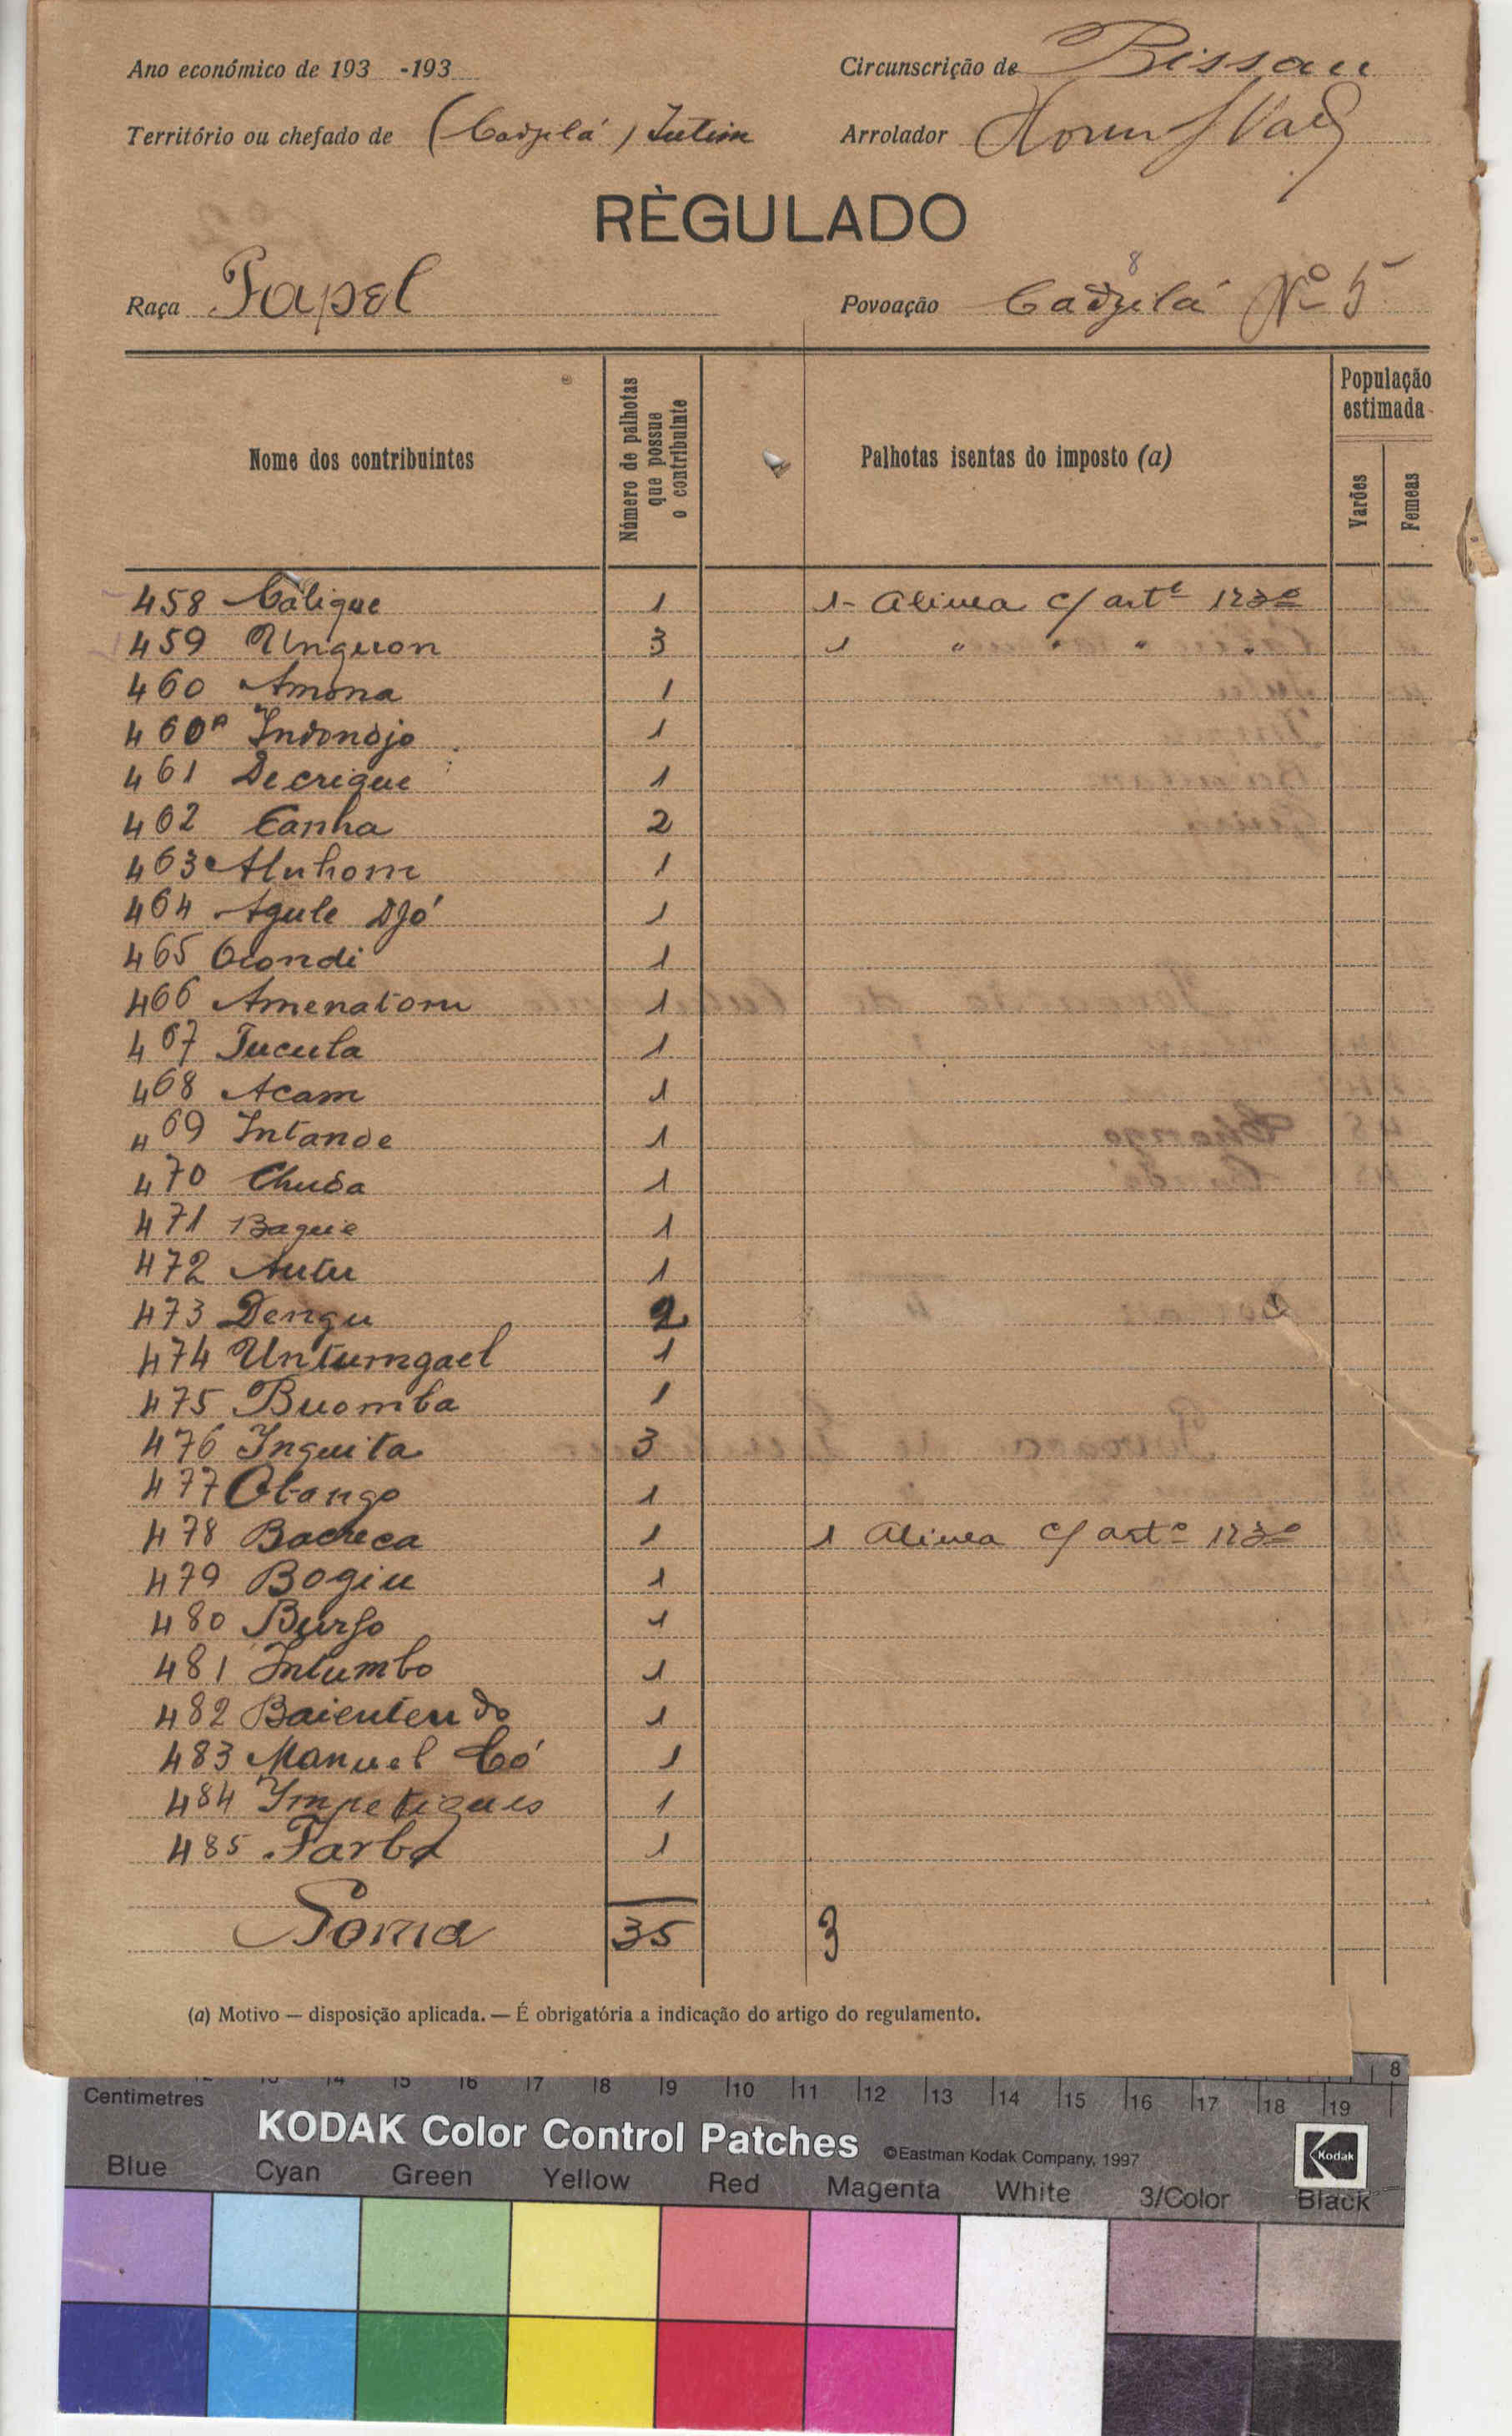 Ano económico de 193 -193
Circunscrição de Bissau
Território ou chefado de (Cadjilá) Intim
Arrolador
RÈGULADO
Raça Papel
8
Povoação Cadjilá Nº 5
Nome dos contribuintes
Número de palhotas que possue o contribuinte
Palhotas isentas do imposto (a)
População estimada
Varões
Femeas
458 Calique 1 1- Alinea c/ artº 123º
459 Unguron 3 1 " " " "
460 Amona 1
460A Indondjo 1
461 Decrique 1
462 Canha 2
463 Aluhom 1
464 Agule Djó 1
465 Ocondi 1
466 Amenatom 1
467 Tucula 1
468 Acam 1
469 Intande 1
470 Chuda 1
471 Bague 1
472 Autu 1
473 Dengu 2
474 Untumgael 1
475 Buomba 1
476 Inquita 3
477 Obango 1
478 Bacreca 1 1 Alinea c/ artº 123º
479 Bogiu 1
480 Burso 1
481 Intumbo 1
482 Baientendo 1
483 Manuel Có 1
484 Impetiques 1
485 Farba 1
Soma 35 3
(a) Motivo — disposição aplicada. — É obrigatória a indicação do artigo do regulamento.
8
Centimetres 12 13 14 15 16 17 18 19 10 11 12 13 14 15 16 17 18 19
KODAK Color Control Patches ©Eastman Kodak Company, 1997 Kodak
Blue Cyan Green Yellow Red Magenta White 3/Color Black